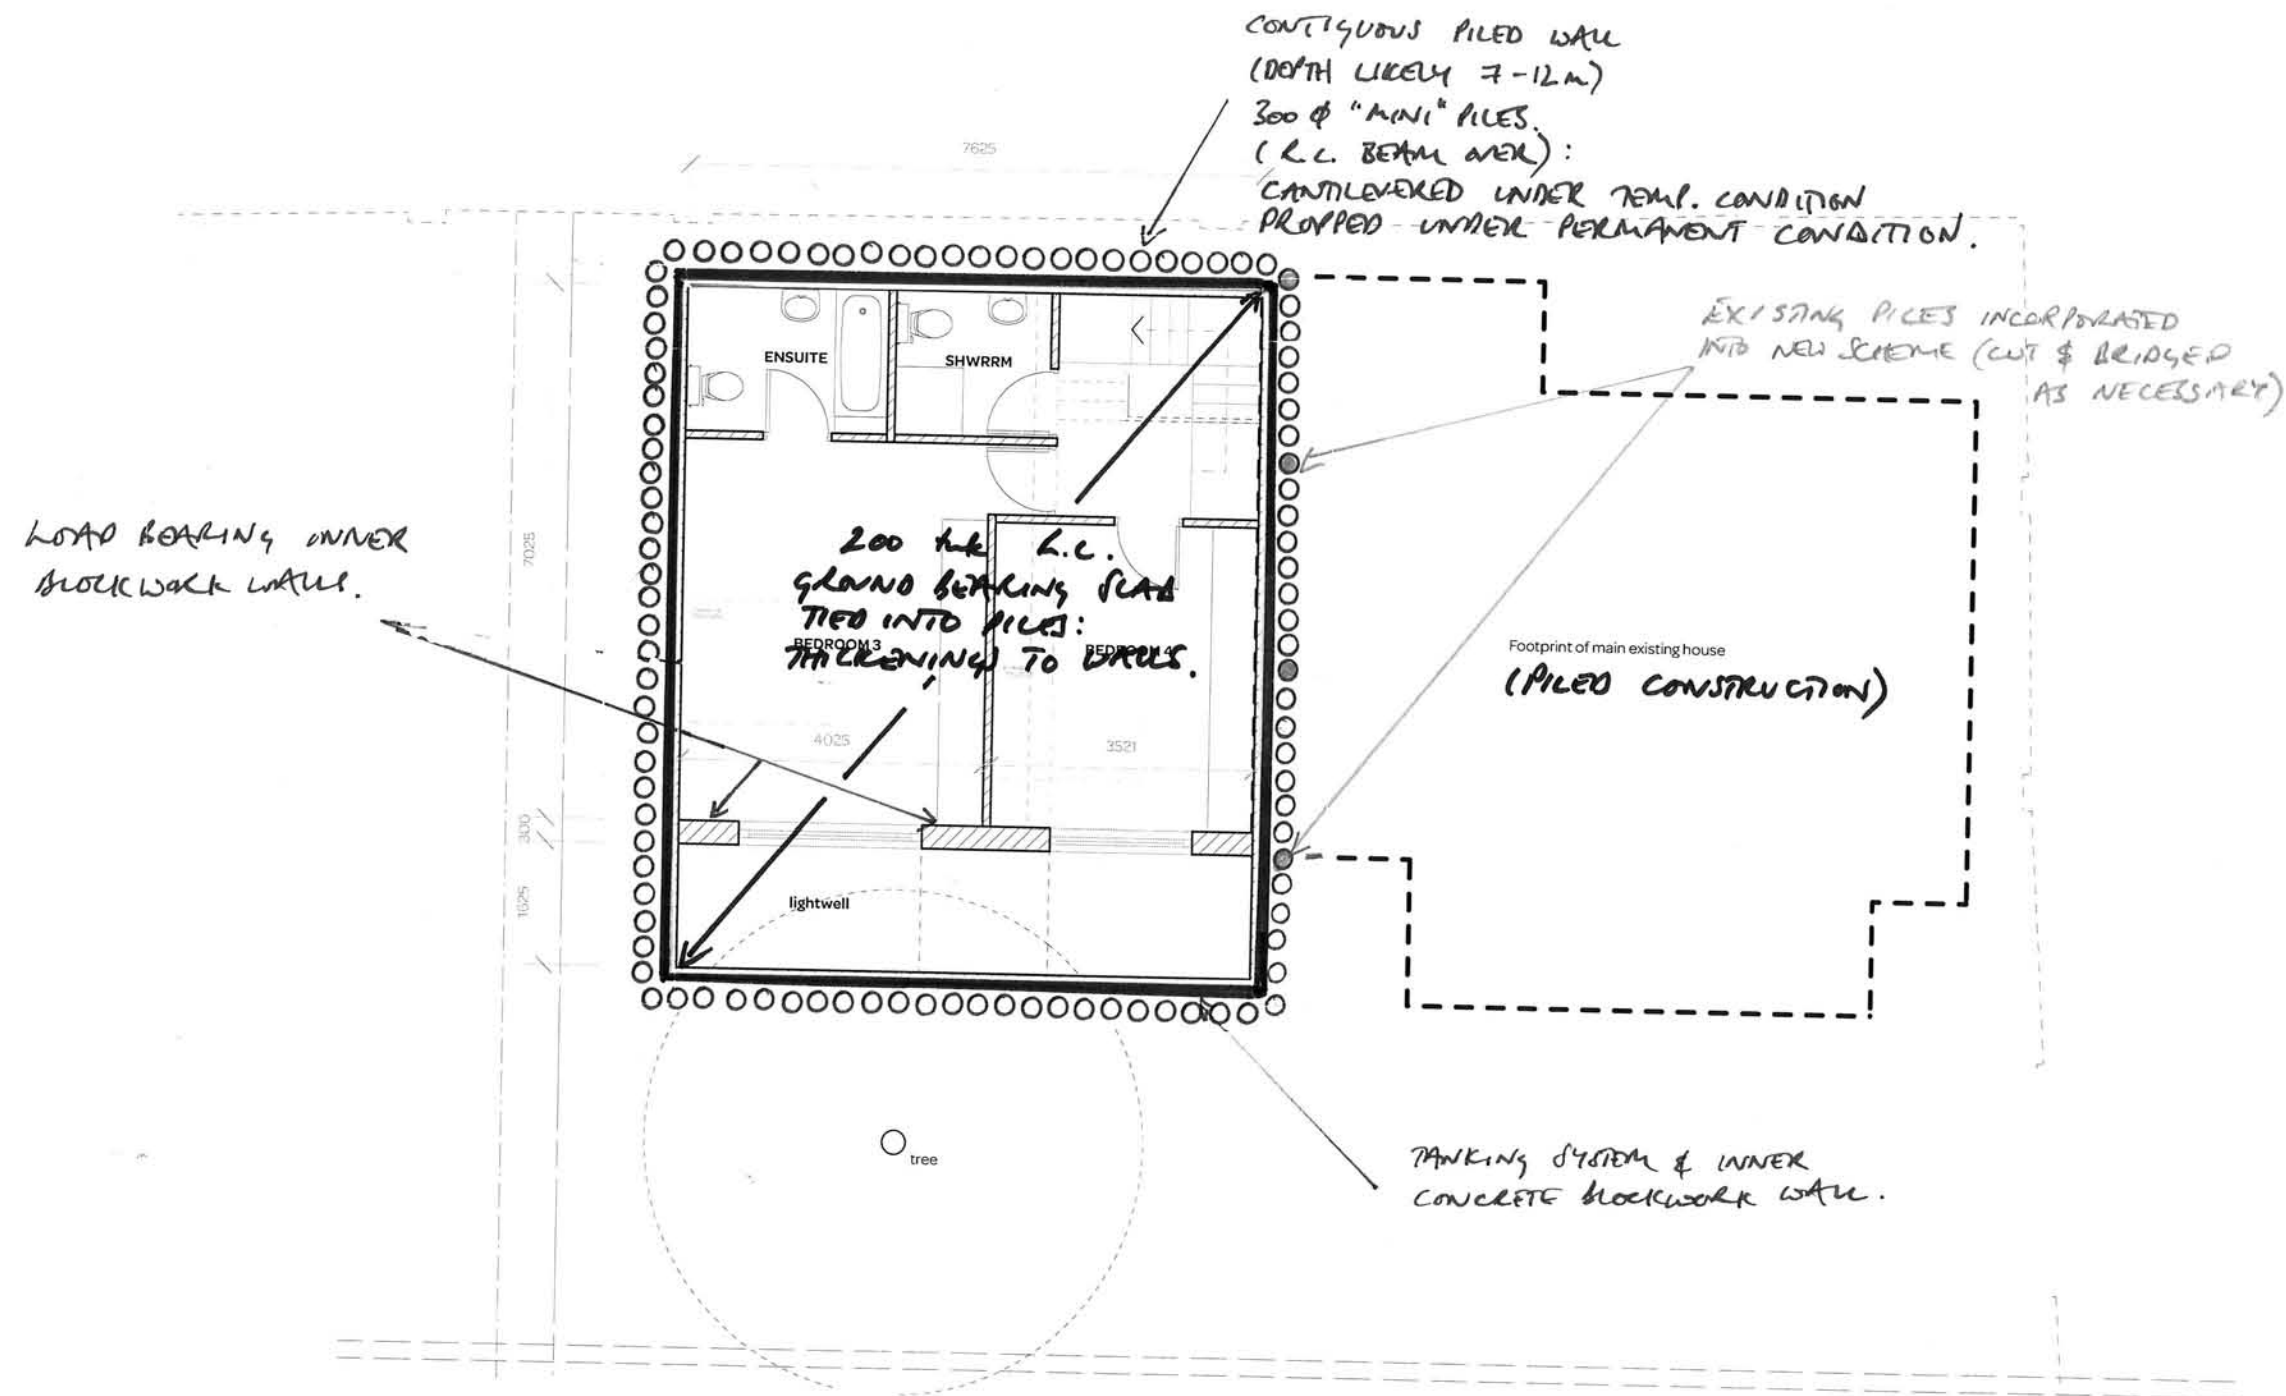 CONTIGUOUS PILED WALL
(DEPTH LIKELY 7-12m)
300 φ "MINI" PILES.
(R.C. BEAM OVER):
CANTILEVERED UNDER TEMP. CONDITION
PROPPED UNDER PERMANENT CONDITION.
7625
EXISTING PILES INCORPORATED
INTO NEW SCHEME (CUT & BRIDGED
AS NECESSARY)
ENSUITE
SHWRRM
LOAD BEARING INNER
BLOCKWORK WALLS.
7025
200 thk R.C.
GROUND BEARING SLAB
TIED INTO PILES:
THICKENINGS TO WALLS.
BEDROOM 3
BEDROOM 4
Footprint of main existing house
(PILED CONSTRUCTION)
4025
3521
300
1625
lightwell
tree
TANKING SYSTEM & INNER
CONCRETE BLOCKWORK WALL.